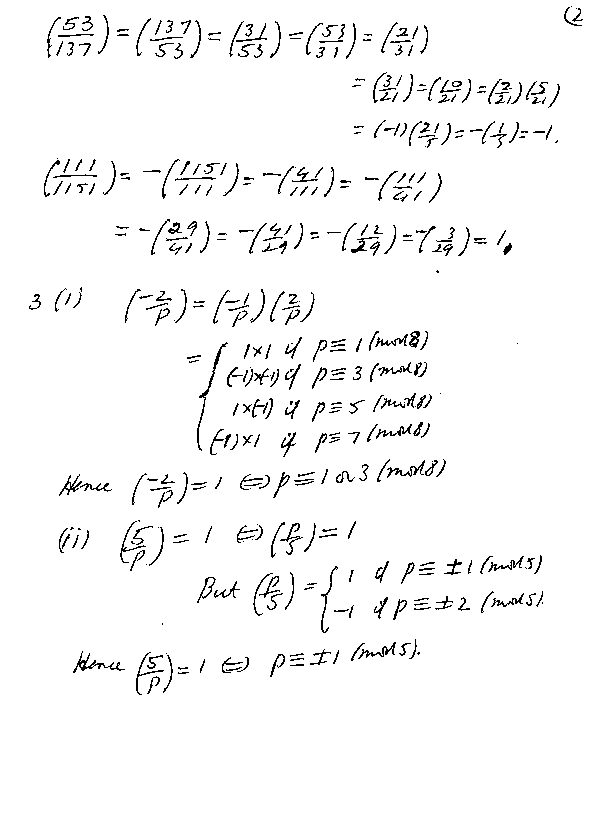 (2
(53/137) = (137/53) = (31/53) = (53/31) = (21/31)
= (31/21) = (10/21) = (2/21)(5/21)
= (-1)(21/5) = -(1/5) = -1.
(111/1151) = -(1151/111) = -(41/111) = -(111/41)
= -(29/41) = -(41/29) = -(12/29) = -(3/29) = 1.
3 (i) (-2/p) = (-1/p)(2/p)
= { 1×1 if p ≡ 1 (mod 8)
(-1)×(-1) if p ≡ 3 (mod 8)
1×(-1) if p ≡ 5 (mod 8)
(-1)×1 if p ≡ 7 (mod 8)
Hence (-2/p) = 1 ⇔ p ≡ 1 or 3 (mod 8)
(ii) (5/p) = 1 ⇔ (p/5) = 1
But (p/5) = { 1 if p ≡ ±1 (mod 5)
-1 if p ≡ ±2 (mod 5).
Hence (5/p) = 1 ⇔ p ≡ ±1 (mod 5).